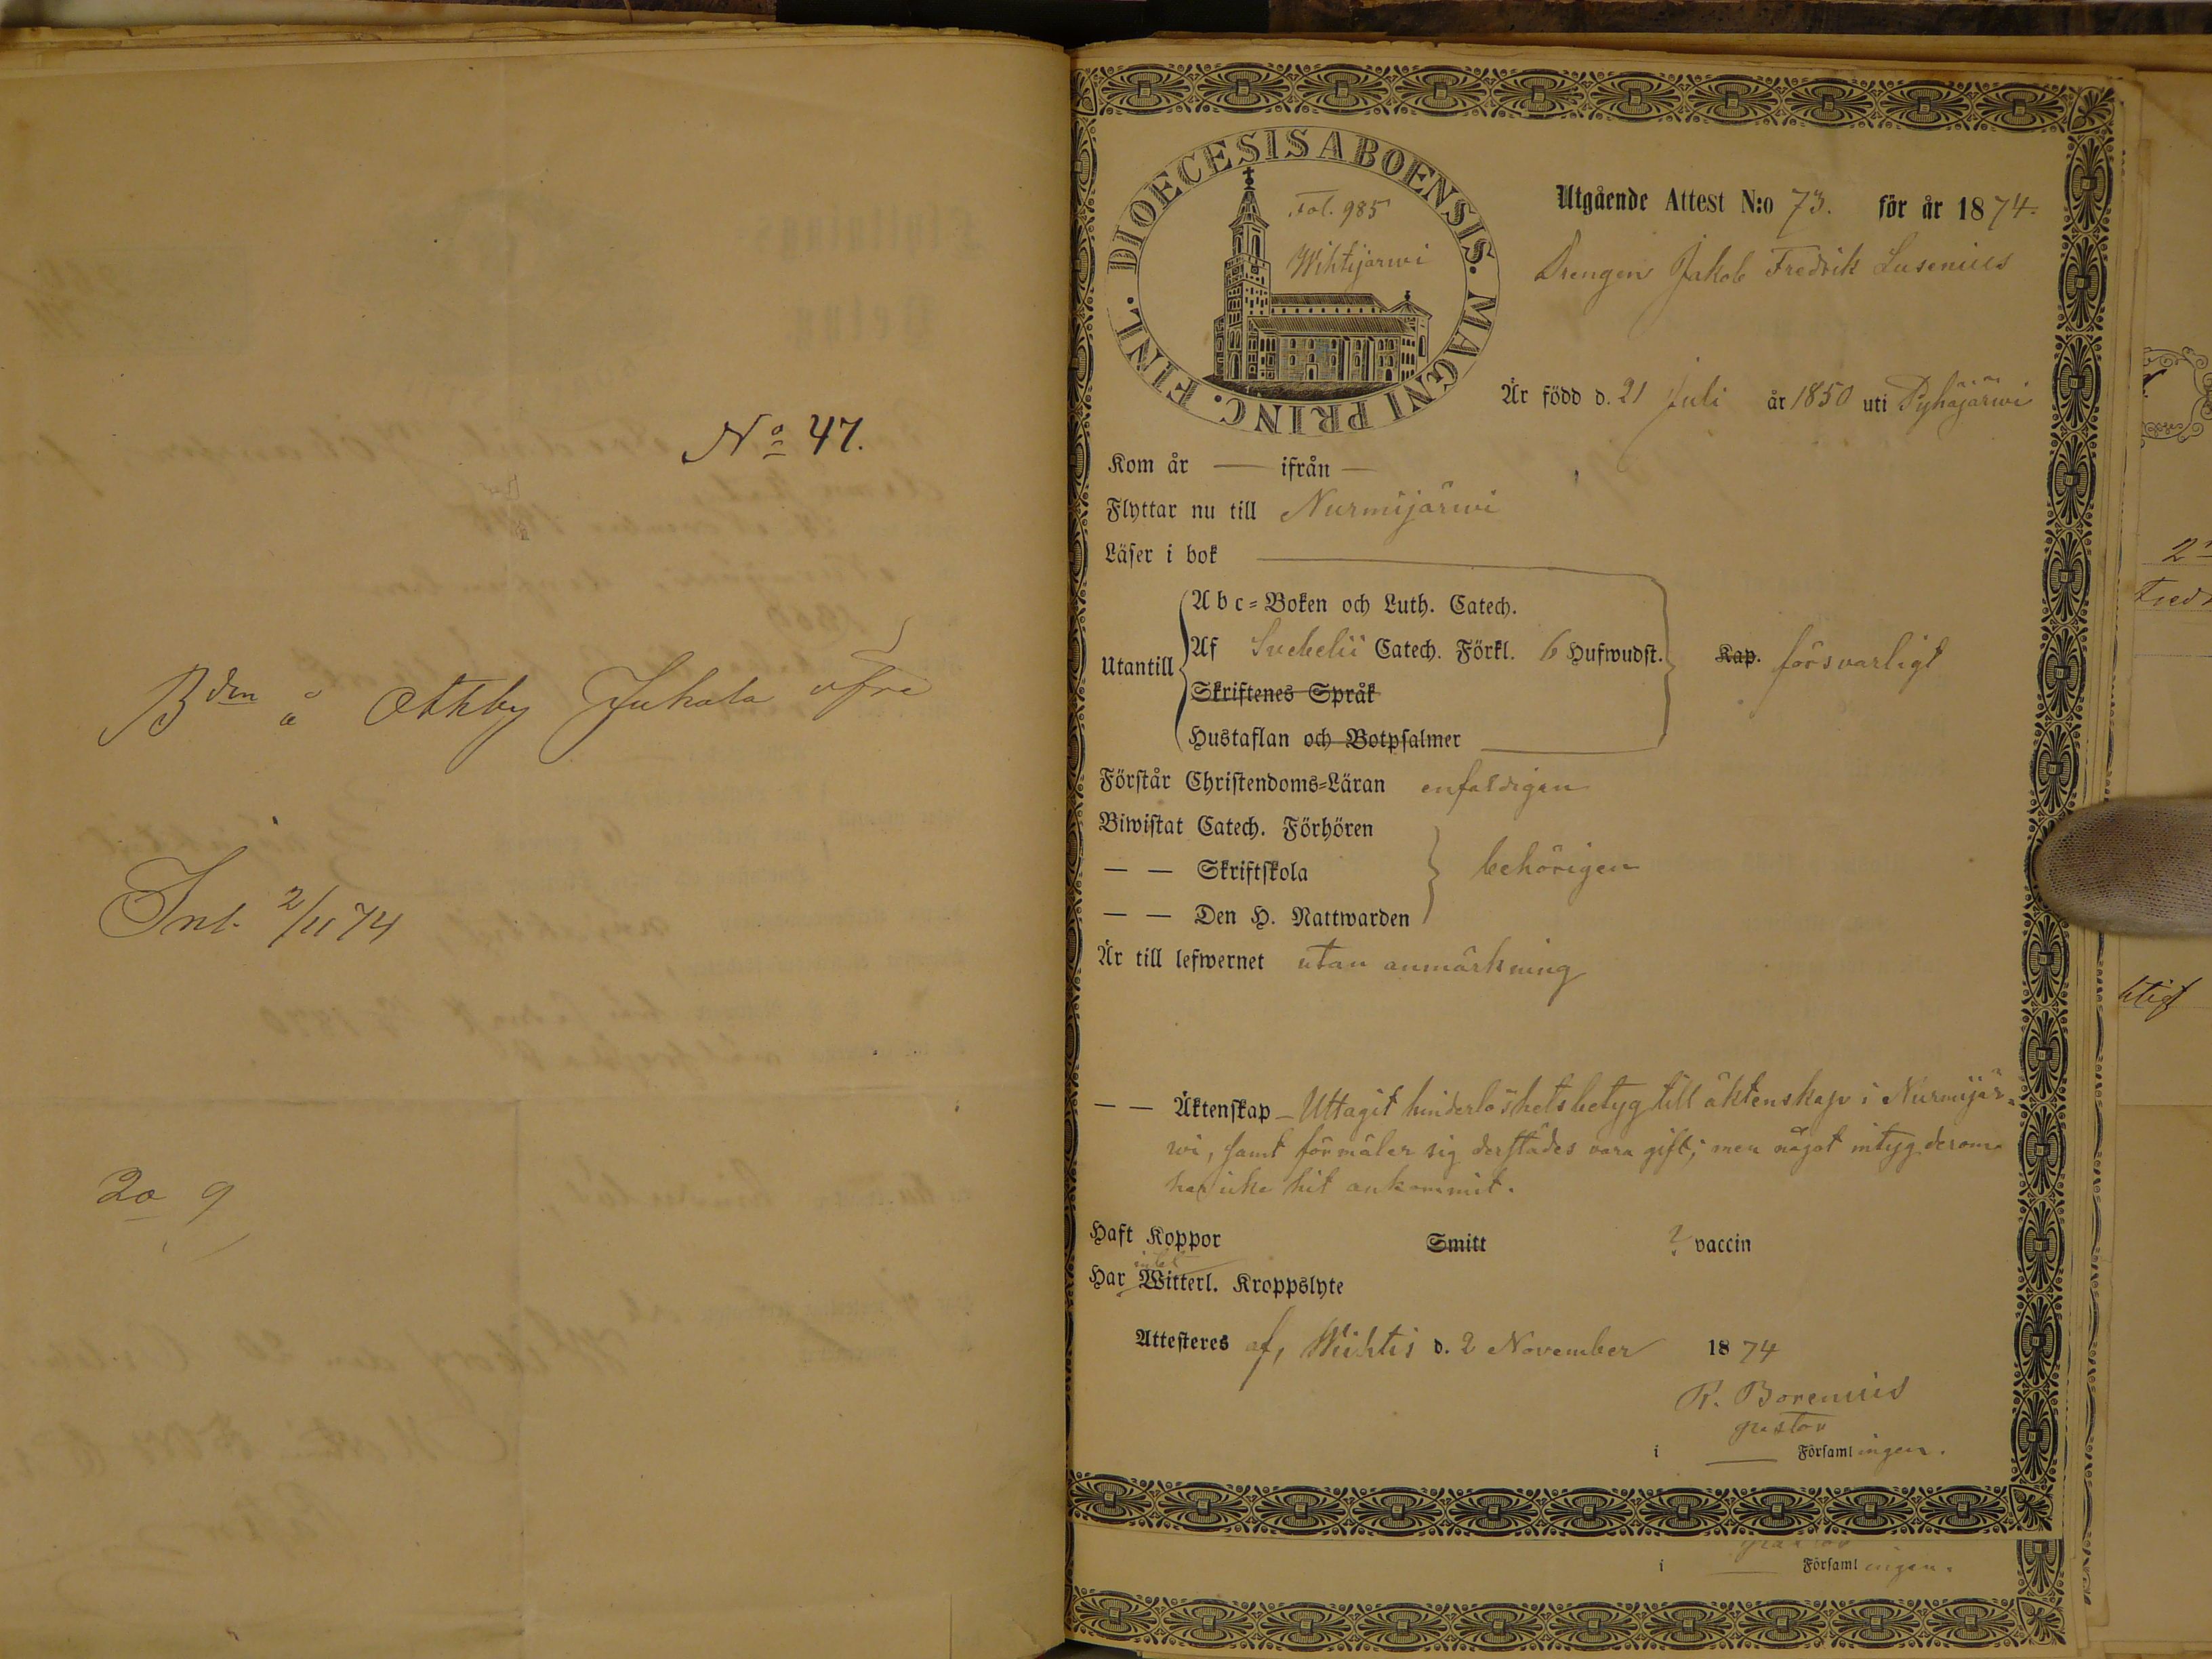 No 47.
Bden å Othby Juhala öfre
Inl. 2/11 74
20 9
DIOECESIS ABOENSIS. MAGNI PRINC. FINL.
Fol. 985
Wihtijärwi
Utgående Attest N:o 73. för år 1874.
Drengen Jakob Fredrik Lusenius
Är född d. 21 Juli år 1850 uti Pyhäjärwi
Kom år — ifrån —
Flyttar nu till Nurmijärwi
Läser i bok
Abc-Boken och Luth. Catech.
Utantill Af Svebelii Catech. Förkl. 6 Hufwudst. Kap. försvarligt
Skriftenes Språk
Hustaflan och Botpsalmer
Förstår Christendoms-Läran enfaldigen
Biwistat Catech. Förhören
— — Skriftskola behörigen
— — Den H. Nattwarden
Är till lefwernet utan anmärkning
— — Äktenskap – Uttagit hinderlöshetsbetyg till äktenskap i Nurmijär-
wi, samt förmäler sig derstädes vara gift; men något intyg derom
har icke hit ankommit.
Haft Koppor Smitt ? vaccin
Har intet Witterl. Kroppslyte
Attesteres af, Wichtis d. 2 November 1874
R. Borenius
pastor
i — Församlingen.
i — Församlingen.